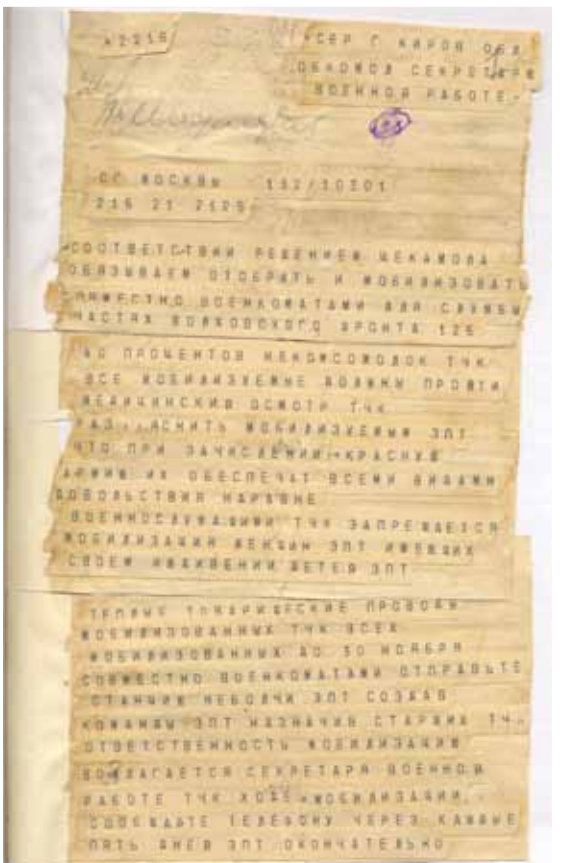 СЕР Г КИРОВ ОБЛ
ОБКОМОЛ СЕКРЕТАРЮ
ВОЕННОЙ РАБОТЕ -
ОГ МОСКВЫ 132/10301
216 21 2125
СООТВЕТСТВИИ РЕШЕНИЕМ ЦЕКАМОЛА
ОБЯЗЫВАЕМ ОТОБРАТЬ И МОБИЛИЗОВАТЬ
СОВМЕСТНО ВОЕНКОМАТАМИ ДЛЯ СЛУЖБЫ
ЧАСТЯХ ВОЛХОВСКОГО ФРОНТА 125
ДО ПРОЦЕНТОВ НЕКОМСОМОЛОК ТЧК
ВСЕ МОБИЛИЗУЕМЫЕ ДОЛЖНЫ ПРОЙТИ
МЕДИЦИНСКИЙ ОСМОТР ТЧК
РАЗ,,ЯСНИТЬ МОБИЛИЗУЕМЫМ ЗПТ
ЧТО ПРИ ЗАЧИСЛЕНИИ КРАСНУЮ
АРМИЮ ИХ ОБЕСПЕЧАТ ВСЕМИ ВИДАМИ
ДОВОЛЬСТВИЯ НАРАВНЕ
ВОЕННОСЛУЖАЩИМИ ТЧК ЗАПРЕЩАЕТСЯ
МОБИЛИЗАЦИЯ ЖЕНЩИН ЗПТ ИМЕЮЩИХ
СВОЕМ ИЖДИВЕНИИ ДЕТЕЙ ЗПТ
ТЕПЛЫЕ ТОВАРИЩЕСКИЕ ПРОВОДЫ
МОБИЛИЗОВАННЫХ ТЧК ВСЕХ
МОБИЛИЗОВАННЫХ ДО 30 НОЯБРЯ
СОВМЕСТНО ВОЕНКОМАТАМИ ОТПРАВЬТЕ
СТАНЦИЮ НЕБОЛЧИ ЗПТ СОЗДАВ
КОМАНДЫ ЗПТ НАЗНАЧИВ СТАРШИХ ТЧК
ОТВЕТСТВЕННОСТЬ МОБИЛИЗАЦИЮ
ВОЗЛАГАЕТСЯ СЕКРЕТАРЯ ВОЕННОЙ
РАБОТЕ ТЧК ХОДЕ МОБИЛИЗАЦИИ
СООБЩАЙТЕ ТЕЛЕФОНУ ЧЕРЕЗ КАЖДЫЕ
ПЯТЬ ДНЕЙ ЗПТ ОКОНЧАТЕЛЬНО